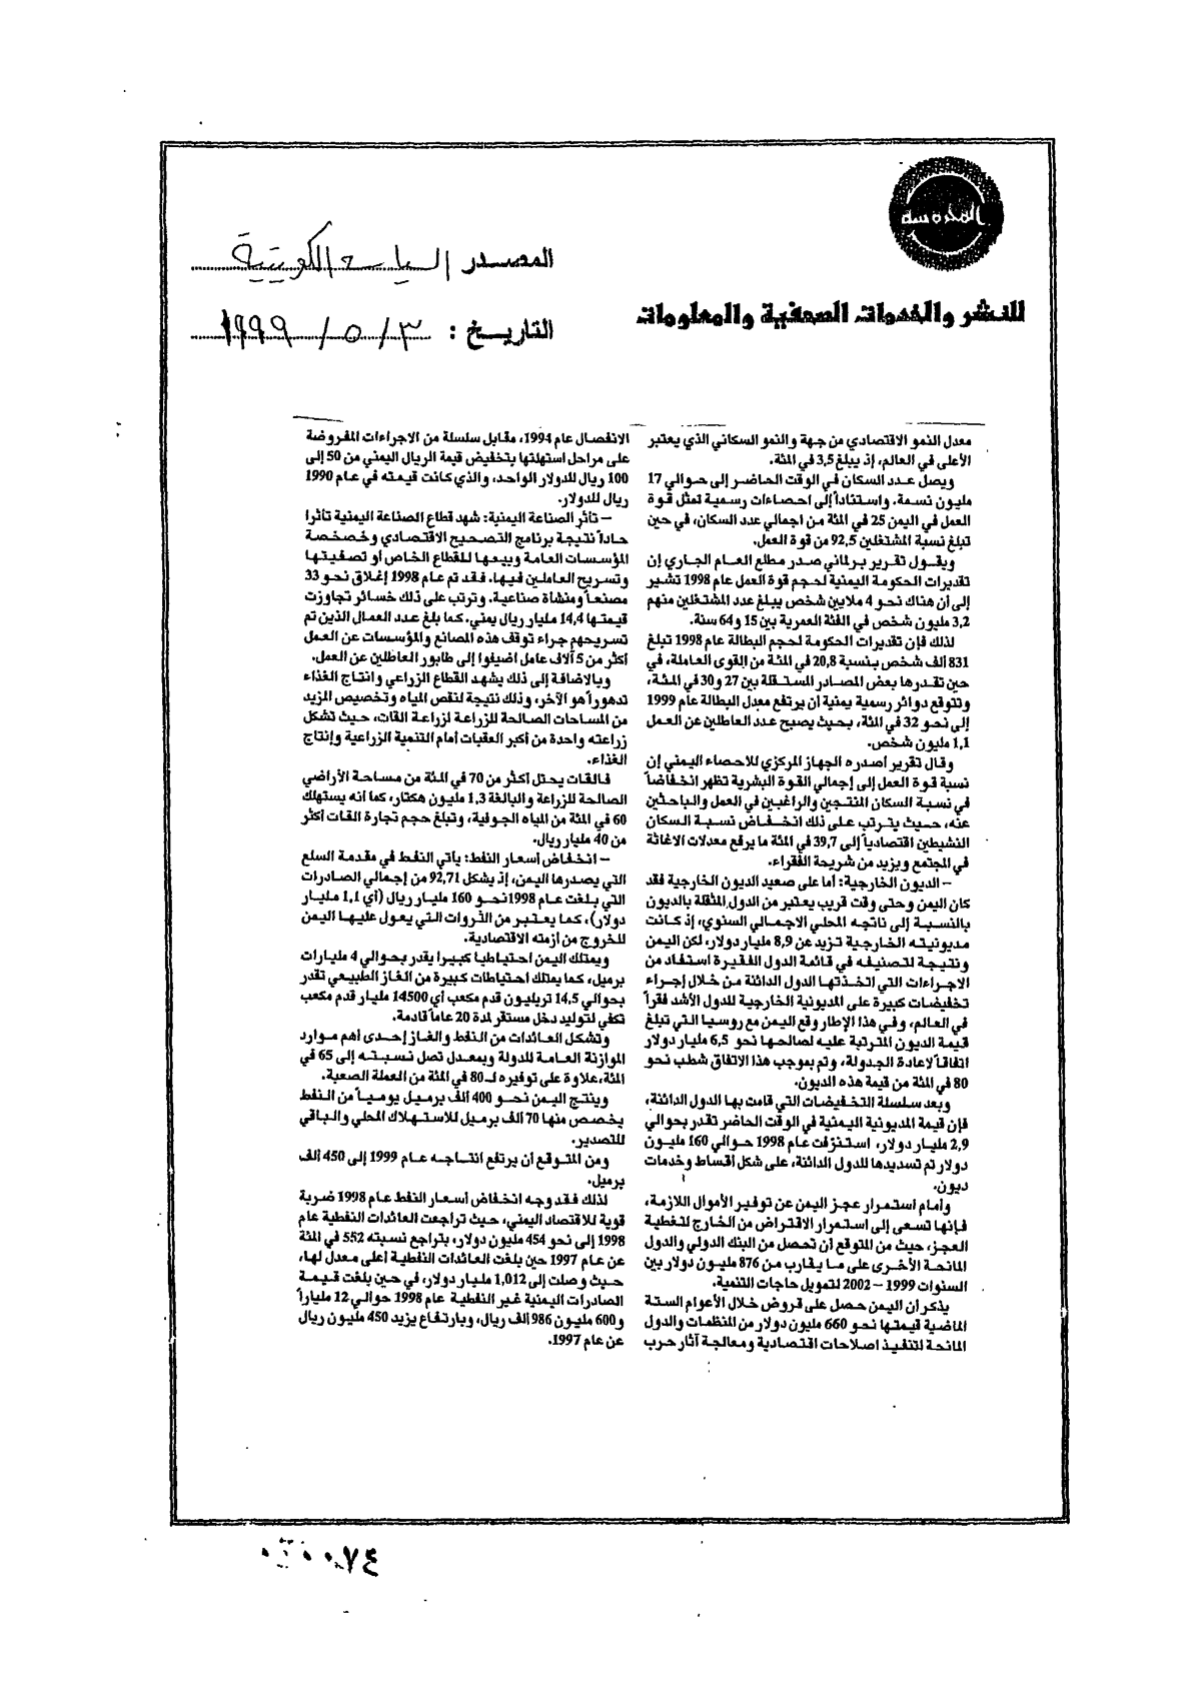 المحروسة
للنشر والخدمات الصحفية والمعلومات
المصدر السياسة الكويتية
التاريخ : ٣ / ٥ / ١٩٩٩
معدل النمو الاقتصادي من جهة والنمو السكاني الذي يعتبر
الأعلى في العالم، إذ يبلغ 3,5 في المئة.
ويصل عدد السكان في الوقت الحاضر إلى حوالي 17
مليون نسمة. واستناداً إلى احصاءات رسمية تمثل قوة
العمل في اليمن 25 في المئة من اجمالي عدد السكان، في حين
تبلغ نسبة المشتغلين 92,5 من قوة العمل.
ويقول تقرير برلماني صدر مطلع العام الجاري إن
تقديرات الحكومة اليمنية لحجم قوة العمل عام 1998 تشير
إلى أن هناك نحو 4 ملايين شخص يبلغ عدد المشتغلين منهم
3,2 مليون شخص في الفئة العمرية بين 15 و64 سنة.
لذلك فإن تقديرات الحكومة لحجم البطالة عام 1998 تبلغ
831 ألف شخص بنسبة 20,8 في المئة من القوى العاملة، في
حين تقدرها بعض المصادر المستقلة بين 27 و30 في المئة،
وتتوقع دوائر رسمية يمنية أن يرتفع معدل البطالة عام 1999
إلى نحو 32 في المئة، بحيث يصبح عدد العاطلين عن العمل
1,1 مليون شخص.
وقال تقرير اصدره الجهاز المركزي للاحصاء اليمني إن
نسبة قوة العمل إلى إجمالي القوة البشرية تظهر انخفاضاً
في نسبة السكان المنتجين والراغبين في العمل والباحثين
عنه، حسيث يترتب على ذلك انخفاض نسبة السكان
النشيطين اقتصادياً إلى 39,7 في المئة ما يرفع معدلات الاغاثة
في المجتمع ويزيد من شريحة الفقراء.
– الديون الخارجية: أما على صعيد الديون الخارجية فقد
كان اليمن وحتى وقت قريب يعتبر من الدول المثقلة بالديون
بالنسبة إلى ناتجه المحلي الاجمالي السنوي، إذ كانت
مديونيته الخارجية تزيد عن 8,9 مليار دولار، لكن اليمن
ونتيجة لتصنيفه في قائمة الدول الفقيرة استفاد من
الاجراءات التي اتخذتها الدول الدائنة من خلال إجراء
تخفيضات كبيرة على المديونية الخارجية للدول الأشد فقراً
في العالم، وفي هذا الإطار وقع اليمن مع روسيا التي تبلغ
قيمة الديون المترتبة عليه لصالحها نحو 6,5 مليار دولار
اتفاقاً لإعادة الجدولة، وتم بموجب هذا الاتفاق شطب نحو
80 في المئة من قيمة هذه الديون.
وبعد سلسلة التخفيضات التي قامت بها الدول الدائنة،
فإن قيمة المديونية اليمنية في الوقت الحاضر تقدر بحوالي
2,9 مليار دولار، استنزفت عام 1998 حوالي 160 مليون
دولار تم تسديدها للدول الدائنة، على شكل أقساط وخدمات
ديون.
وأمام استمرار عجز اليمن عن توفير الأموال اللازمة،
فإنها تسعى إلى استمرار الاقتراض من الخارج لتغطية
العجز، حيث من المتوقع أن تحصل من البنك الدولي والدول
المانحة الأخرى على ما يقارب من 876 مليون دولار بين
السنوات 1999 – 2002 لتمويل حاجات التنمية.
يذكر أن اليمن حصل على قروض خلال الأعوام الستة
الماضية قيمتها نحو 660 مليون دولار من المنظمات والدول
المانحة لتنفيذ اصلاحات اقتصادية ومعالجة آثار حرب
الانفصال عام 1994، مقابل سلسلة من الاجراءات المفروضة
على مراحل استهلتها بتخفيض قيمة الريال اليمني من 50 إلى
100 ريال للدولار الواحد، والذي كانت قيمته في عام 1990
ريال للدولار.
– تأثر الصناعة اليمنية: شهد قطاع الصناعة اليمنية تأثرا
حاداً نتيجة برنامج التصحيح الاقتصادي وخصخصة
المؤسسات العامة وبيعها للقطاع الخاص أو تصفيتها
وتسريح العاملين فيها. فقد تم عام 1998 إغلاق نحو 33
مصنعاً ومنشأة صناعية. وترتب على ذلك خسائر تجاوزت
قيمتها 14,4 مليار ريال يمني. كما بلغ عدد العمال الذين تم
تسريحهم جراء توقف هذه المصانع والمؤسسات عن العمل
أكثر من 5 آلاف عامل اضيفوا إلى طابور العاطلين عن العمل.
وبالاضافة إلى ذلك يشهد القطاع الزراعي وانتاج الغذاء
تدهوراً هو الآخر، وذلك نتيجة لنقص المياه وتخصيص المزيد
من المساحات الصالحة للزراعة لزراعة القات، حيث تشكل
زراعته واحدة من أكبر العقبات أمام التنمية الزراعية وإنتاج
الغذاء.
فالقات يحتل أكثر من 70 في المئة من مساحة الأراضي
الصالحة للزراعة والبالغة 1,3 مليون هكتار، كما أنه يستهلك
60 في المئة من المياه الجوفية، وتبلغ حجم تجارة القات أكثر
من 40 مليار ريال.
– انخفاض أسعار النفط: يأتي النفط في مقدمة السلع
التي يصدرها اليمن، إذ يشكل 92,71 من إجمالي الصادرات
التي بلغت عام 1998 نحو 160 مليار ريال (أي 1,1 مليار
دولار)، كما يعتبر من الثروات التي يعول عليها اليمن
للخروج من أزمته الاقتصادية.
ويمتلك اليمن احتياطيا كبيرا يقدر بحوالي 4 مليارات
برميل، كما يمتلك احتياطات كبيرة من الغاز الطبيعي تقدر
بحوالي 14,5 تريليون قدم مكعب أي 14500 مليار قدم مكعب
تكفي لتوليد دخل مستقر لمدة 20 عاماً قادمة.
وتشكل العائدات من النفط والغاز إحدى أهم موارد
الموازنة العامة للدولة وبمعدل تصل نسبته إلى 65 في
المئة، علاوة على توفيره لـ80 في المئة من العملة الصعبة.
وينتج اليمن نحو 400 ألف برميل يومياً من النفط
يخصص منها 70 ألف برميل للاستهلاك المحلي والباقي
للتصدير.
ومن المتوقع أن يرتفع انتاجه عام 1999 إلى 450 ألف
برميل.
لذلك فقد وجه انخفاض أسعار النفط عام 1998 ضربة
قوية للاقتصاد اليمني، حيث تراجعت العائدات النفطية عام
1998 إلى نحو 454 مليون دولار، بتراجع نسبته 552 في المئة
عن عام 1997 حين بلغت العائدات النفطية أعلى معدل لها،
حيث وصلت إلى 1,012 مليار دولار، في حين بلغت قيمة
الصادرات اليمنية غير النفطية عام 1998 حوالي 12 ملياراً
و600 مليون 986 ألف ريال، وبارتفاع يزيد 450 مليون ريال
عن عام 1997.